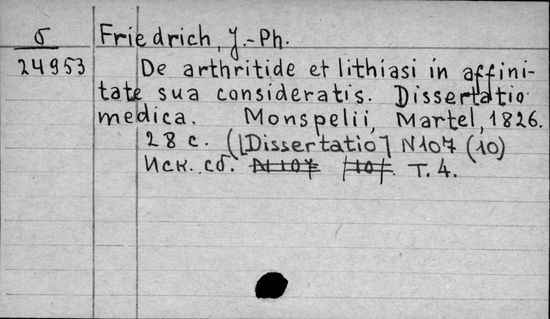 б Friedrich, J.-Ph.
24953 De arthritide et lithiasi in affini-
tate sua consideratis. Dissertatio
medica. Monspelii, Martel, 1826.
28 с. ([Dissertatio] N107 (10)
Иск. сб. N 107 (10). Т. 4.